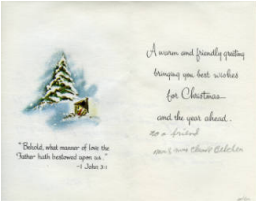 "Behold, what manner of love the
Father hath bestowed upon us."
-I John 3:1
A warm and friendly greeting
bringing you best wishes
for Christmas
and the year ahead...
a friend